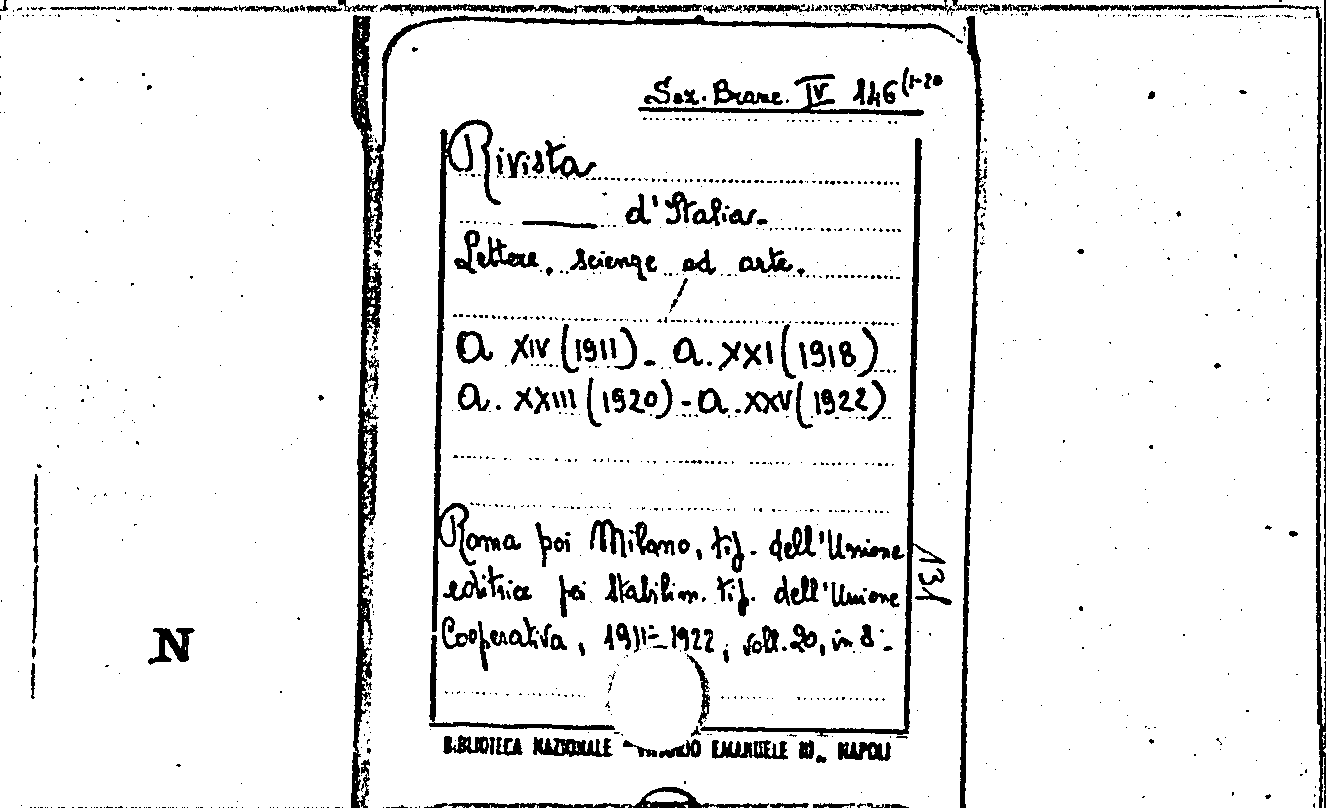 Sez. Branc. IV 146(1-20
Rivista
d'Italia.
Lettere, scienze ed arte.
a XIV (1911) - a. XXI (1918)
a. XXIII (1920) - a. XXV (1922)
Roma poi Milano, tip. dell'Unione
editrice poi Stabilim. tip. dell'Unione
Cooperativa, 1911-1922, voll. 20, in 8.-
131
N
BIBLIOTECA NAZIONALE EMANUELE III„ NAPOLI